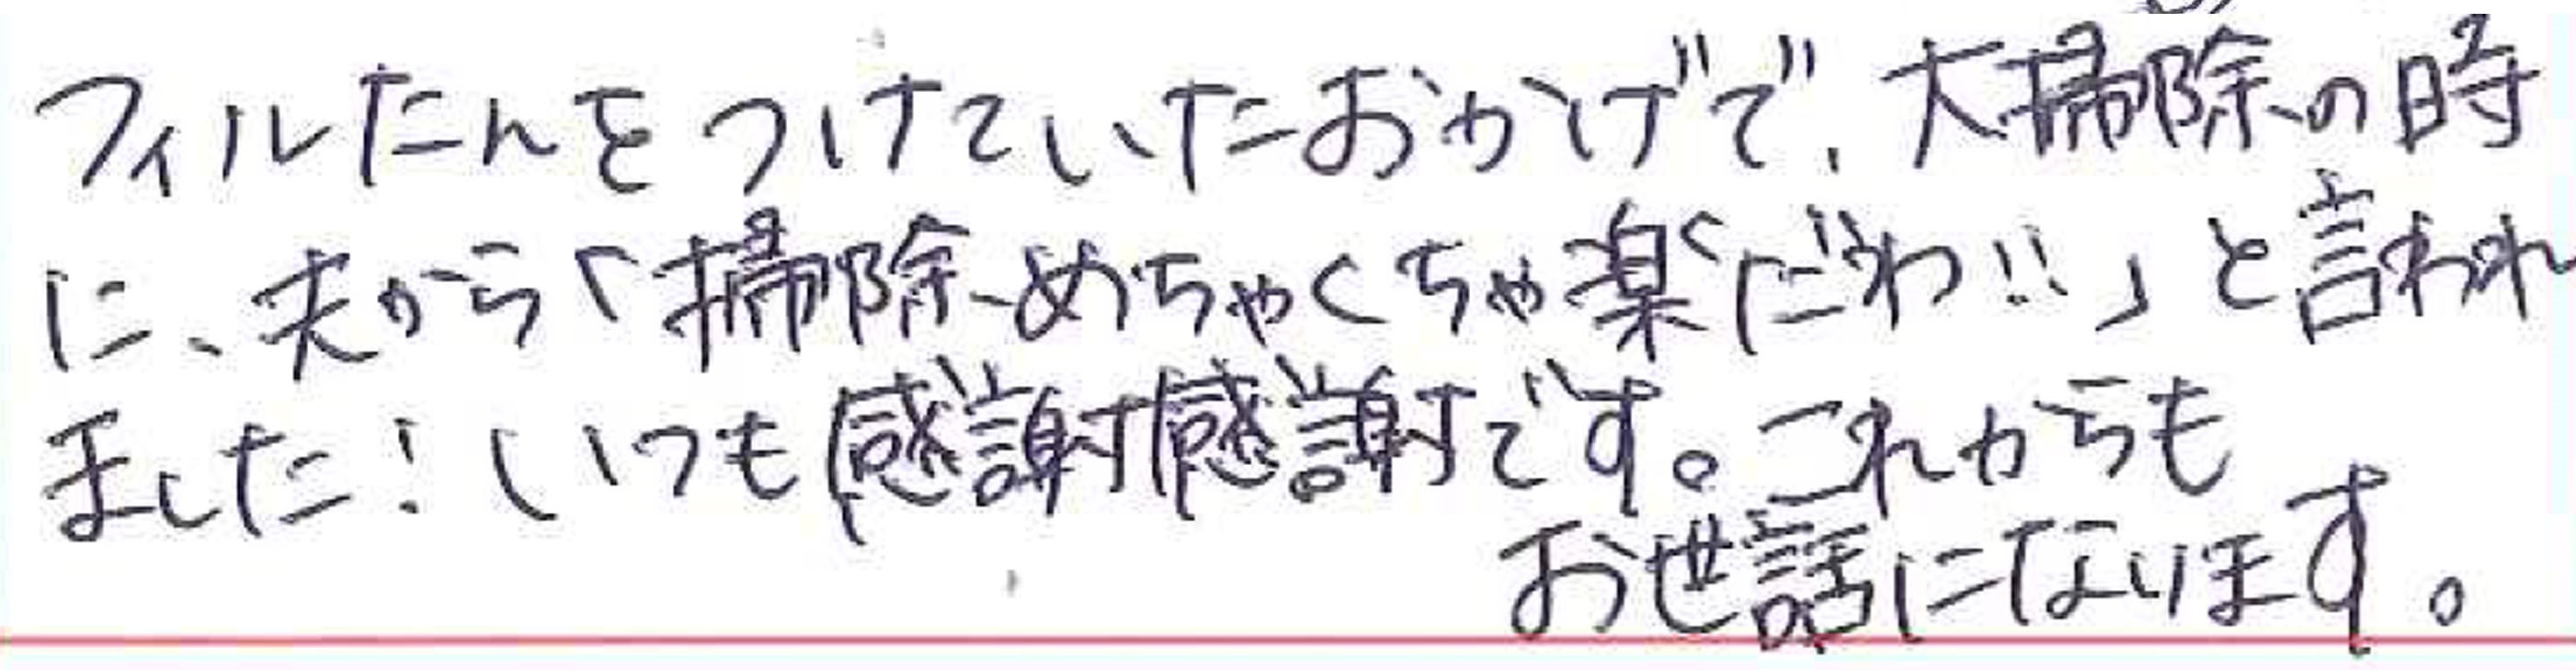 フィルたんをつけていたおかげで、大掃除の時
に、夫から「掃除めちゃくちゃ楽だわ!!」と言われ
ました!いつも感謝感謝です。これからも
お世話になります。